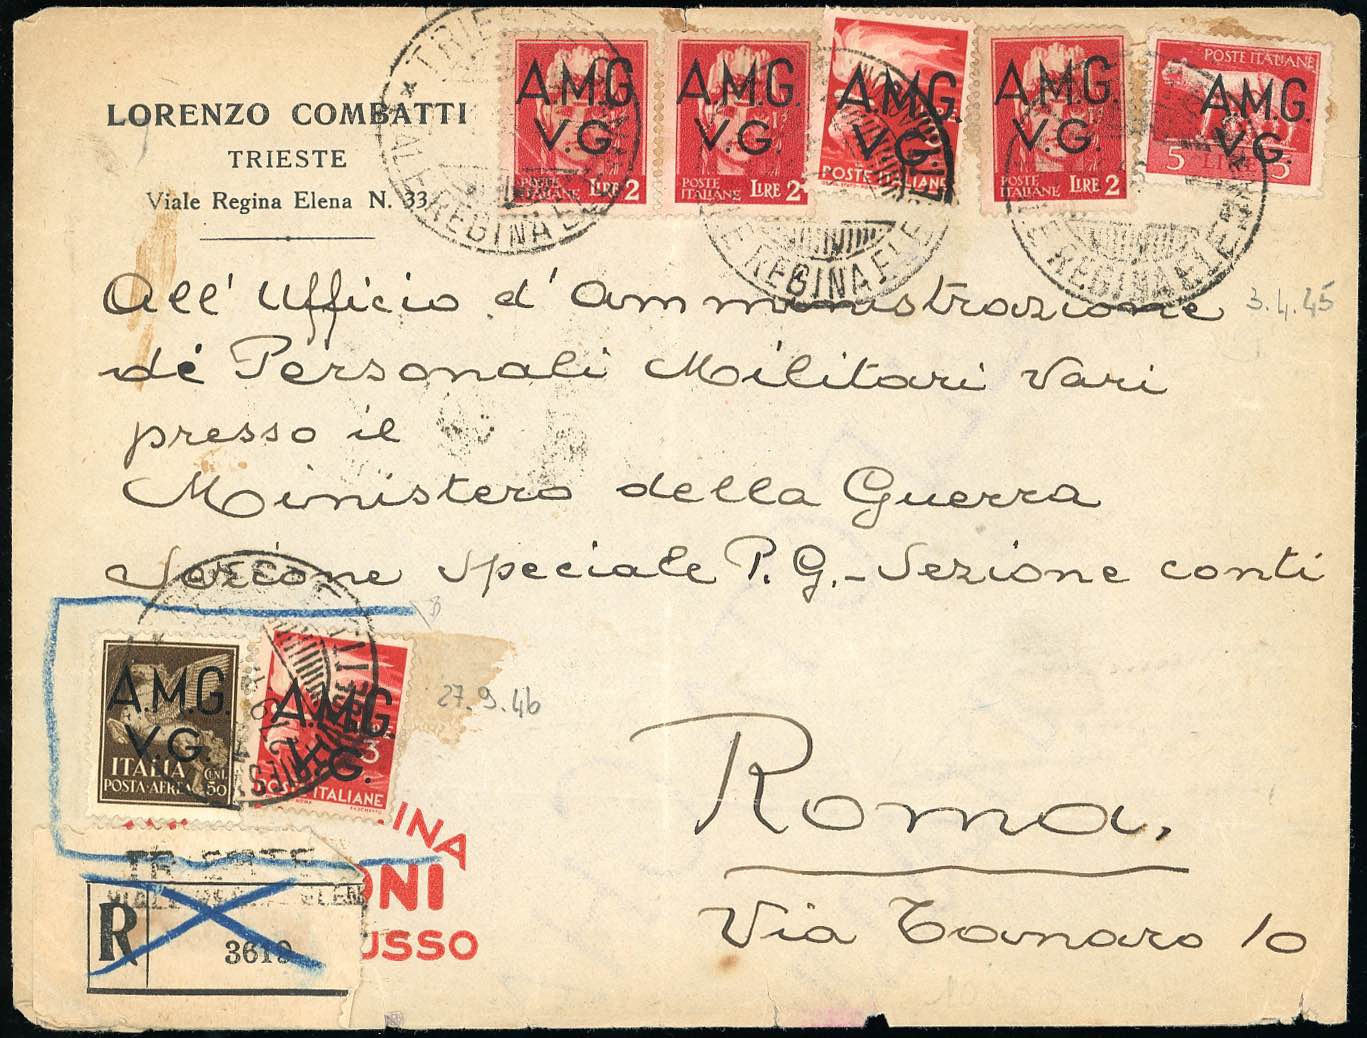 LORENZO COMBATTI
TRIESTE
Viale Regina Elena N. 33
TRIESTE
VIALE REGINA ELENA
A.M.G. V.G.
POSTE ITALIANE LIRE 2
A.M.G. V.G.
POSTE ITALIANE LIRE 2
A.M.G. V.G.
POSTE ITALIANE
A.M.G. V.G.
POSTE ITALIANE LIRE 2
POSTE ITALIANE
A.M.G. V.G.
5 LIRE 5
REGINA ELE
REGINA ELE
All' Ufficio d'Amministrazione
3.4.45
dé Personali Militari Vari
presso il
Ministero della Guerra
Sezione Speciale P.G. - Sezione conti
A.M.G. V.G.
ITALIA CENT.
POSTA-AEREA 50
A.M.G. V.G.
3
POSTE ITALIANE
27.9.46
Roma,
Via Tanaro 10
INA
ONI
USSO
TRIESTE
R 3619